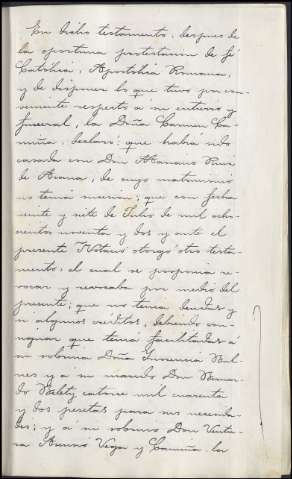 En dicho testamento, despues de
la oportuna protestacion de fé
Católica, Apostólica Romana,
y de disponer lo que tuvo por con-
veniente respecto a su entierro y
funeral, la Doña Carmen Ca-
muña, declaró: que habia sido
casada con Don Mariano Ruiz
de Arana, de cuyo matrimonio
no tenia sucesion; que con fecha
veinte y siete de Julio de mil ocho-
cientos noventa y dos y ante el
presente Notario otorgó otro testa-
mento, el cual se proponia re-
vocar y revocaba por medio del
presente; que no tenia deudas y
si algunos créditos, debiendo con-
signar que tenia facilitadas a
su sobrina Doña
y a su marido Don
catorce mil cuarenta
y dos pesetas para sus necesida-
des; y a su sobrino Don Ventu-
ra Vega y Camuña, la